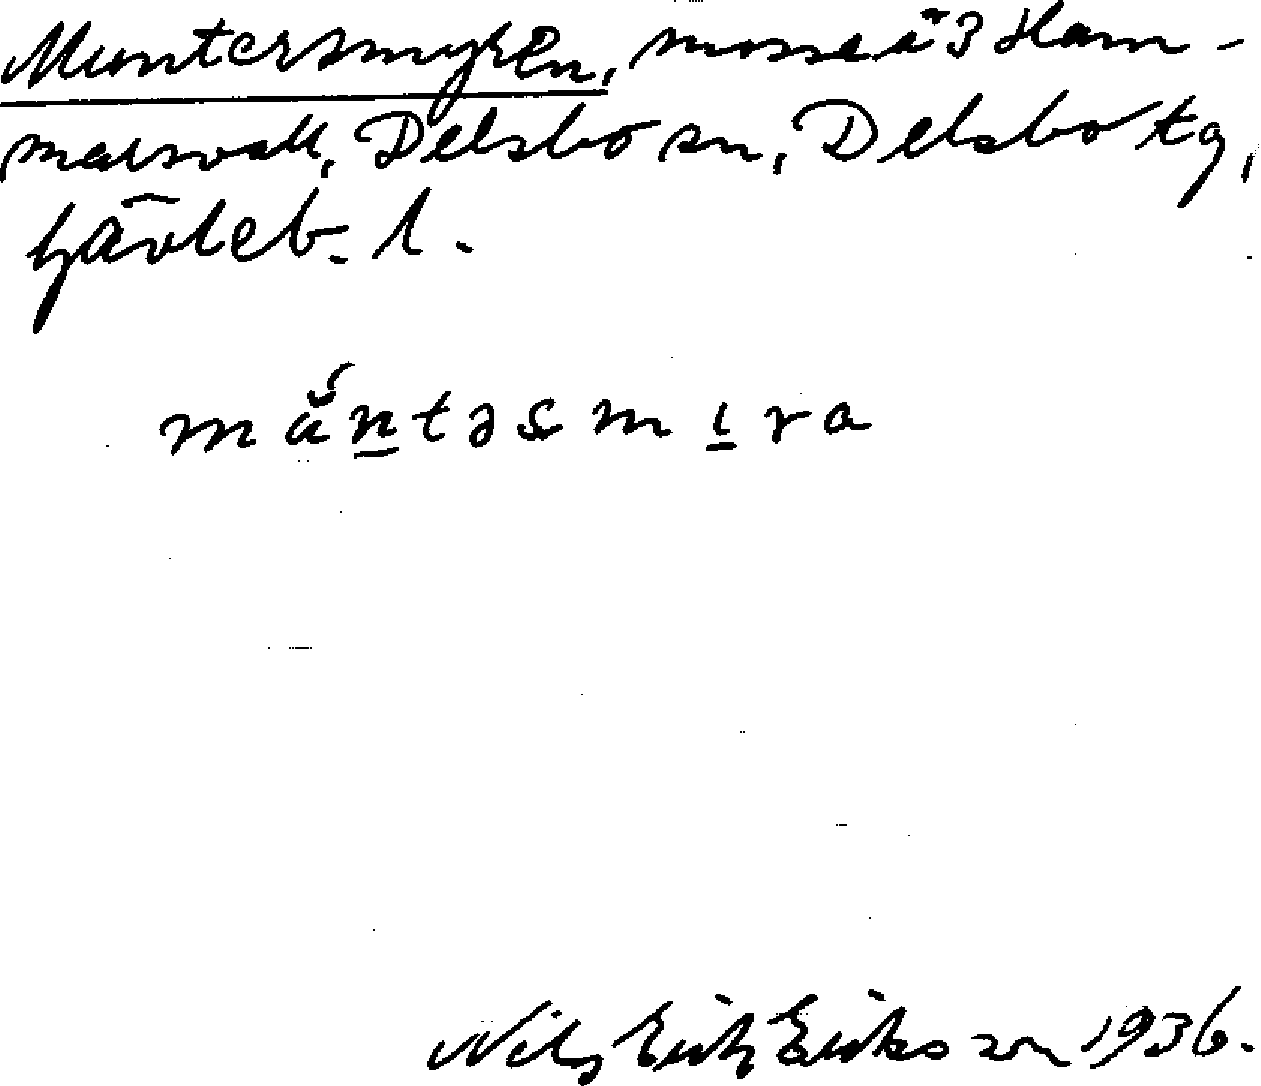 Muntersmyren, mosse i 3 Ham-
marsvall, Delsbo sn, Delsbo tg,
Gävleb. l.
mŭ́ntəsmıra
Nils Erik Eriksson 1936.